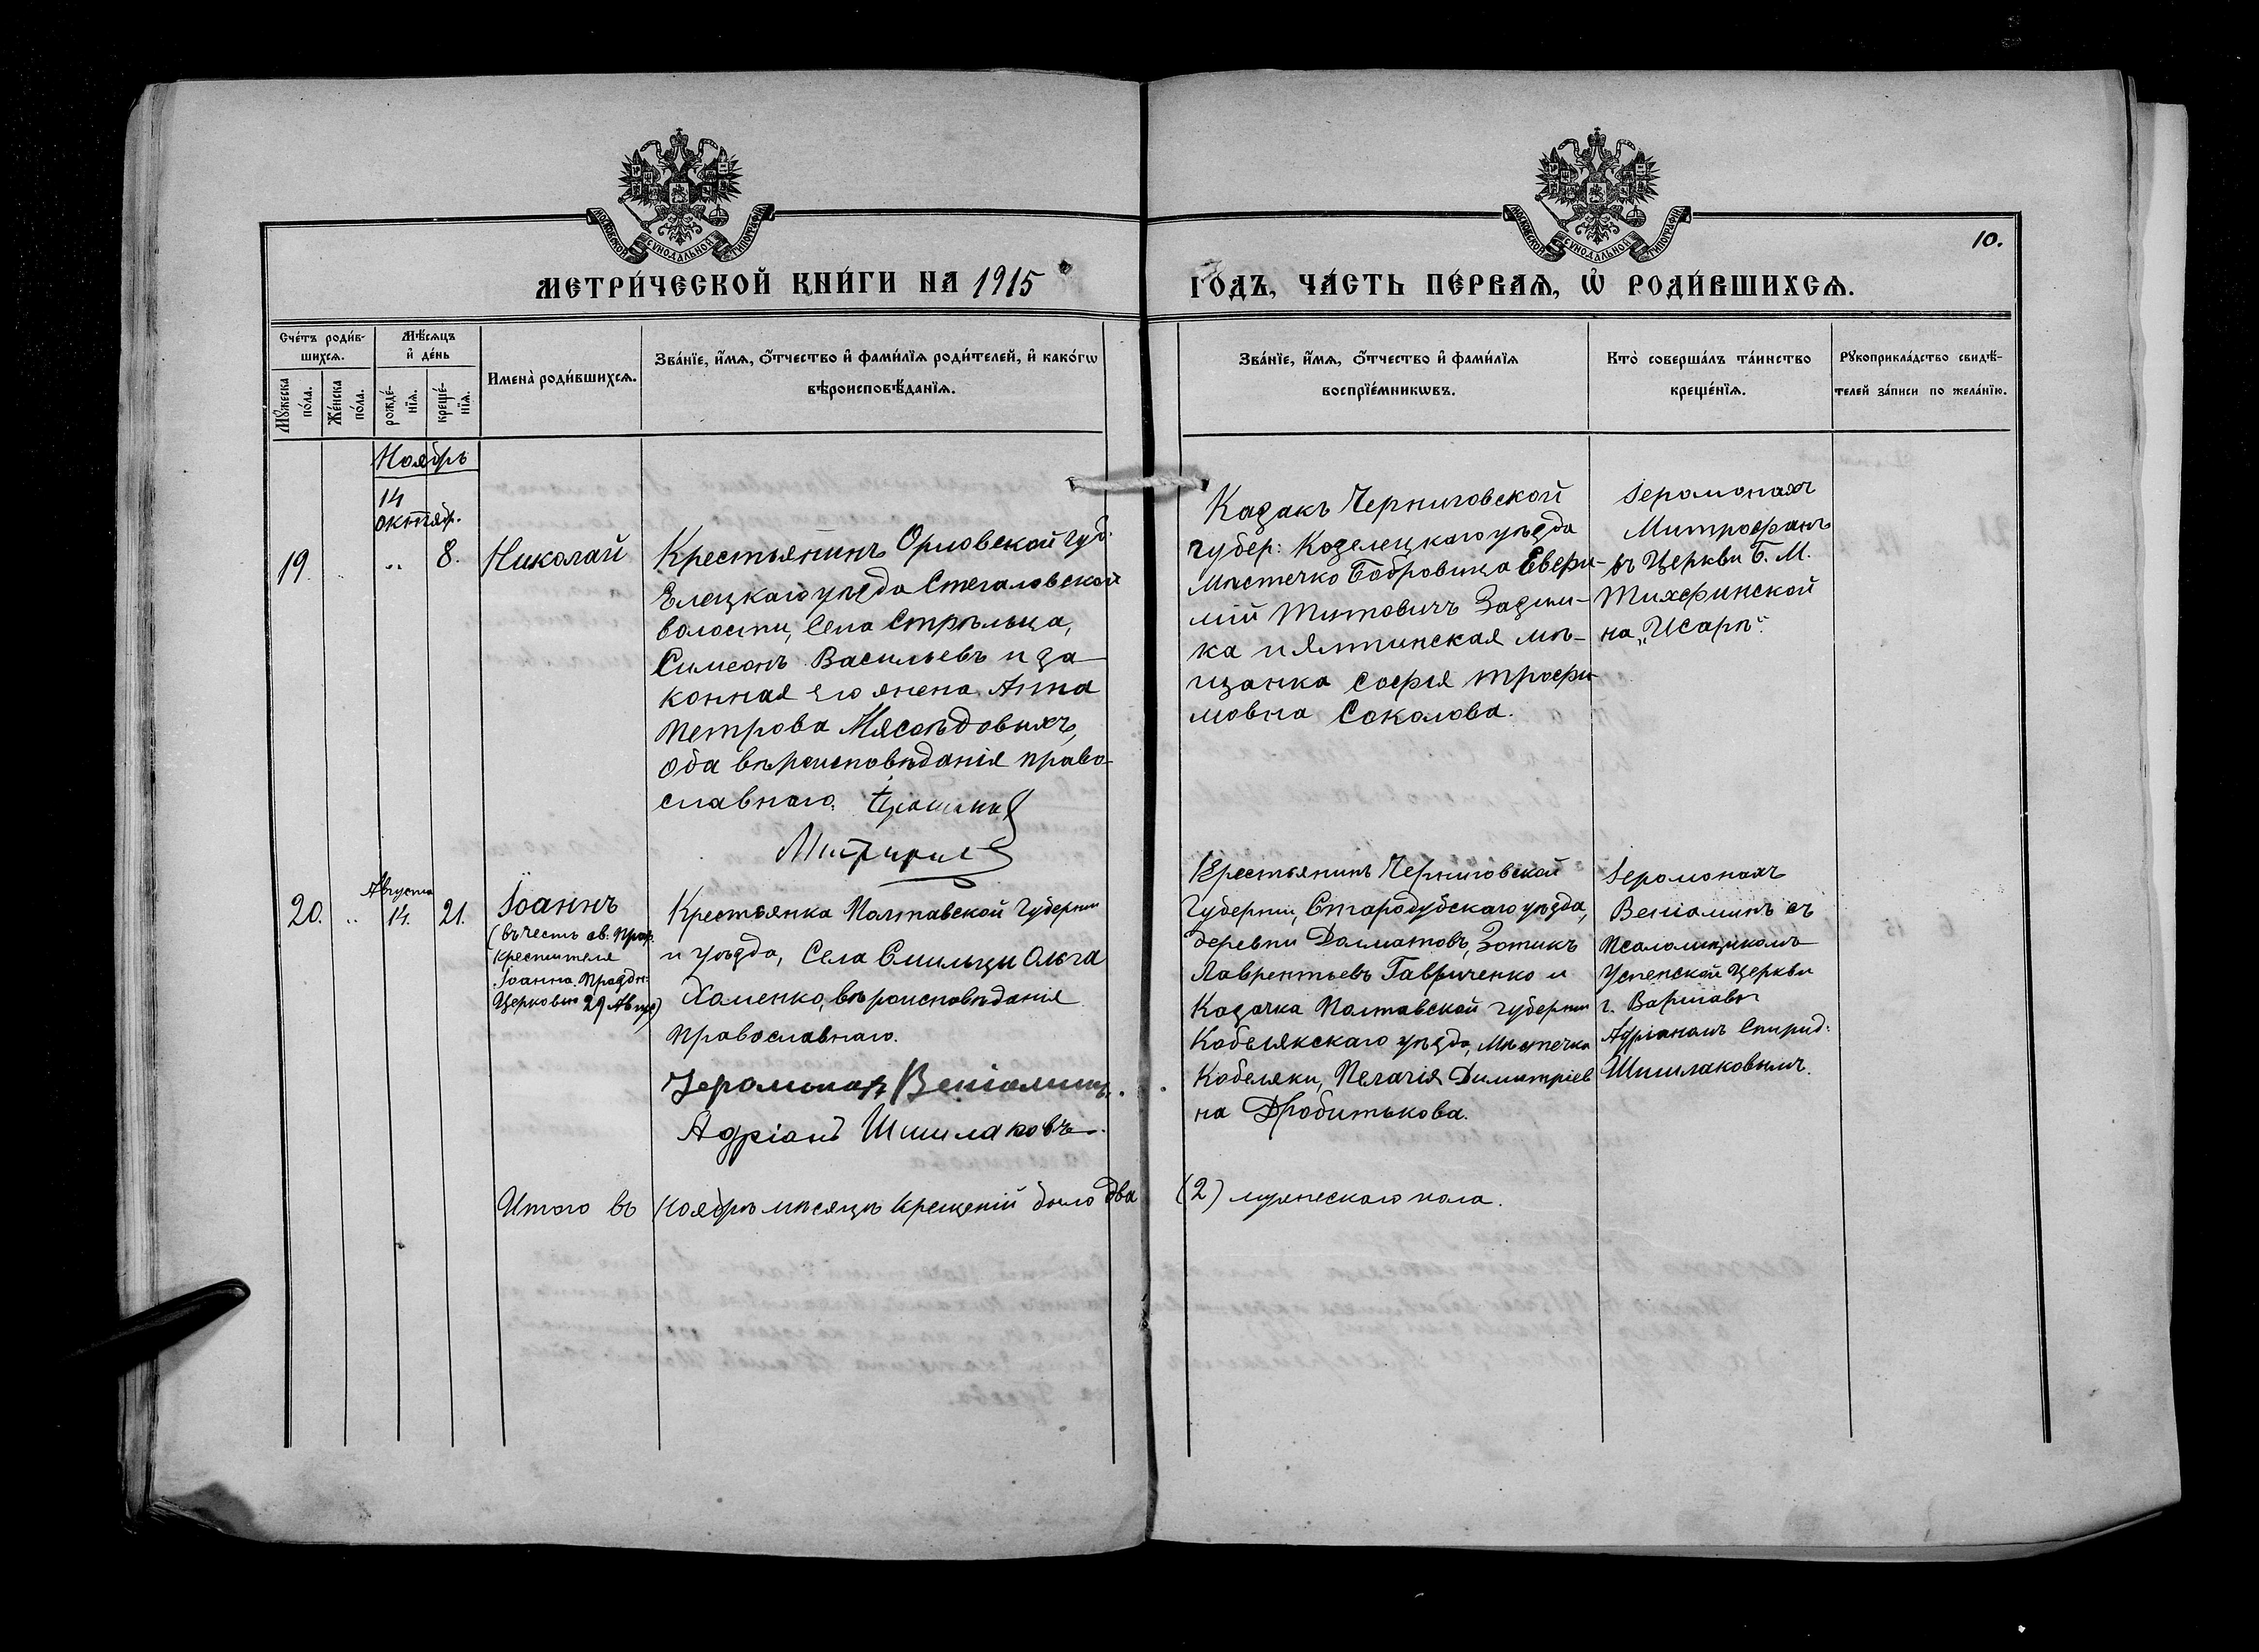 МОСКОВСКОЙ СУНОДАЛЬНОЙ ТИПОГРАФІИ
МОСКОВСКОЙ СУНОДАЛЬНОЙ ТИПОГРАФІИ
10.
МЕТРИ́ЧЕСКОЙ КНИ́ГИ НА 1915
ГО́ДЪ, ЧА́СТЬ ПЕ́РВАѦ, Ѡ҆ РОДИ́ВШИХСѦ.
Сче́тъ роди́в-
шихсѧ.
Мѣ́сѧцъ
и҆ де́нь
Мꙋ́жеска
по́ла.
Же́нска
по́ла.
рожде́-
нїѧ.
креще́-
нїѧ.
Имена̀ роди́вшихсѧ.
Зва́нїе, и҆́мѧ, ѻ҆́тчество и҆ фами́лїѧ роди́телей, и҆ како́гѡ
вѣроисповѣ́данїѧ.
Зва́нїе, и҆́мѧ, ѻ҆́тчество и҆ фами́лїѧ
воспрїе́мникѡвъ.
Кто̀ соверша́лъ та́инство
креще́нїѧ.
Рꙋкоприкла́дство свидѣ́-
телей за́писи по жела́нїю.
Ноябрь
14
октяб.
19. .. 8. Николай
Крестьянинъ Орловской губ.
Елецкаго уѣзда Стегаловской
волости, Села Стрѣльца,
Симеонъ Васильевъ и за
конная его жена Анна
Петрова Мясоѣдовыхъ,
оба вѣроисповѣданія право-
славнаго.
Казакъ Черниговской
губер: Козелецкаго уѣзда
Мѣстечко Бобровица Евфи-
мій Титовичъ
ка и Ялтинская мѣ-
щанка Софія Трофи-
мовна Соколова.
Іеромонахъ
Митрофанъ
въ Церкви Б. М.
Тихфинской
на „Исарѣ".
Августа
20. .. 14. 21. Іоаннъ
(въ честь св. Прор.
Крестителя
Іоанна. Праздн.
Церковью 29 Авгус)
Крестьянка Полтавской Губерніи
и уѣзда, Села Смильцы Ольга
Хаменко, вѣроисповѣданія
православнаго.
Іеромонахъ Веніаминъ.
Адріанъ Шишлаковъ.
Крестьянинъ Черниговской
Губерніи, Стародубскаго уѣзда,
деревни Далматовъ, Зотикъ
Лаврентьевъ Гавриченко и
Казачка Полтавской губерніи
Кобелякскаго уѣзда, Мѣстечка
Кобеляки, Пелагія Димитріев
на Дробитькова.
Іеромонахъ
Веніаминъ съ
Псаломщикомъ
Успенской Церкви
г. Варшавы
Адріаномъ Спирид:
Шишлаковымъ.
Итого въ Ноябрѣ мѣсяцѣ крещеній было два (2) мужескаго пола.